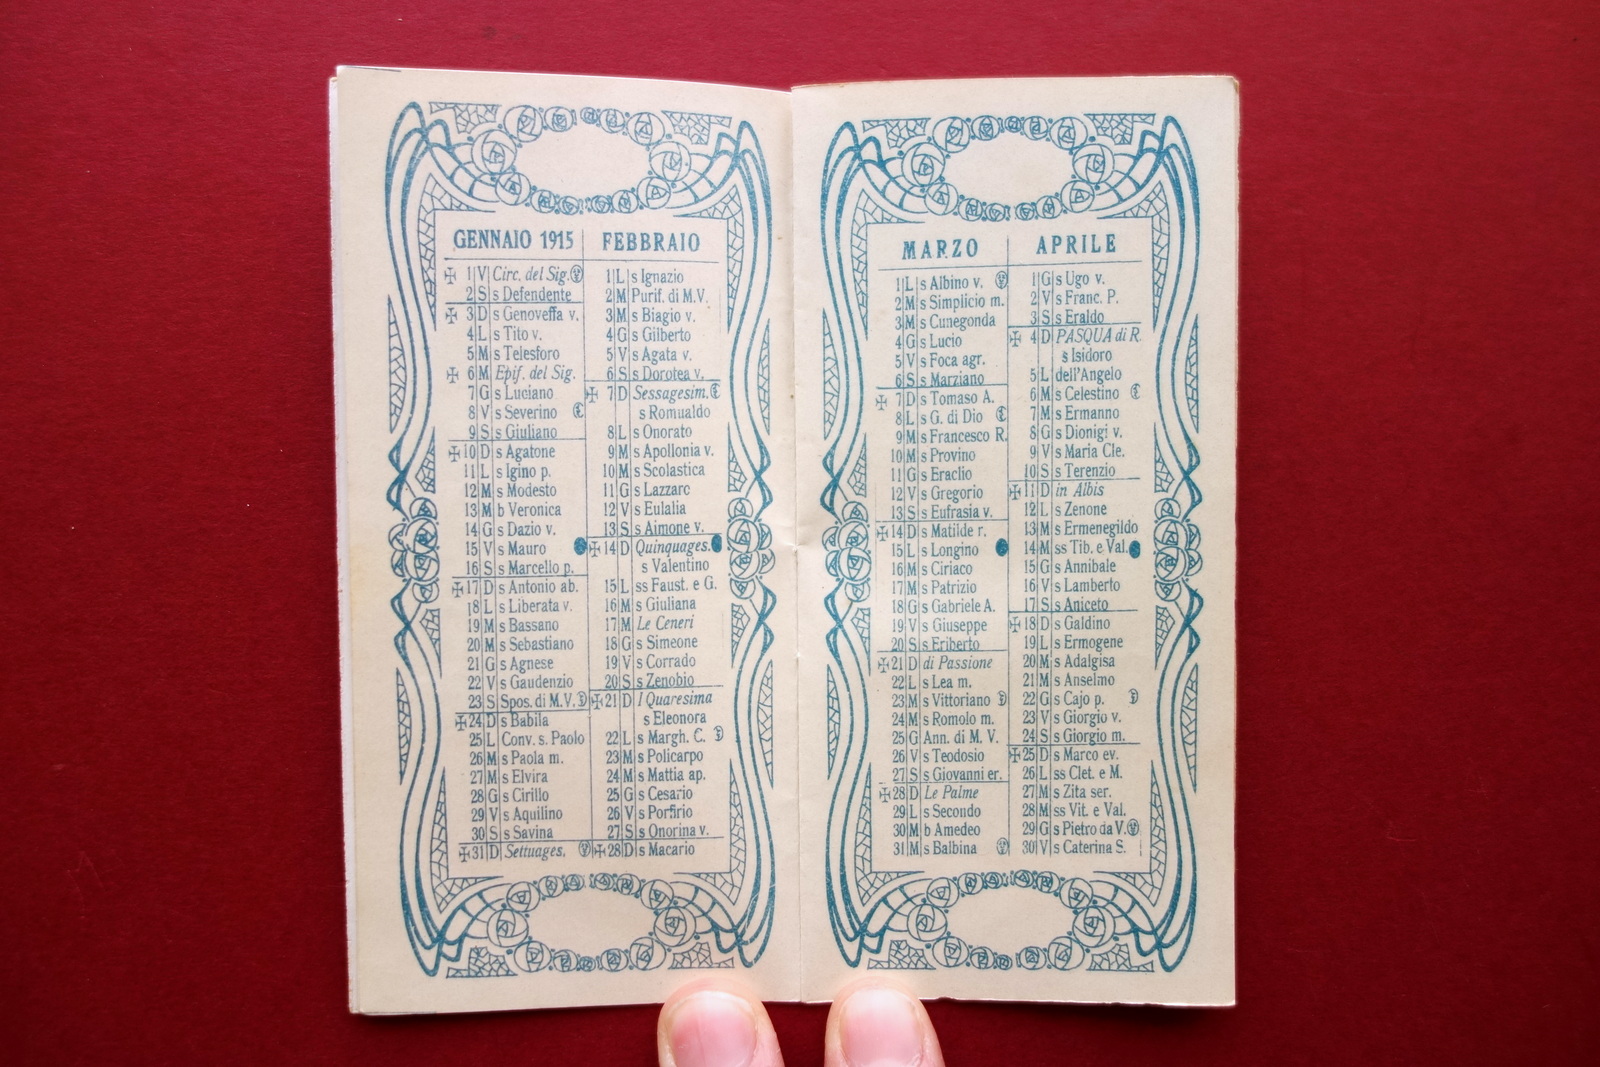 GENNAIO 1915
✠ 1 V Circ. del Sig.
2 S s Defendente
✠ 3 D s Genoveffa v.
4 L s Tito v.
5 M s Telesforo
✠ 6 M Epif. del Sig.
7 G s Luciano
8 V s Severino
9 S s Giuliano
✠ 10 D s Agatone
11 L s Igino p.
12 M s Modesto
13 M b Veronica
14 G s Dazio v.
15 V s Mauro
16 S s Marcello p.
✠ 17 D s Antonio ab.
18 L s Liberata v.
19 M s Bassano
20 M s Sebastiano
21 G s Agnese
22 V s Gaudenzio
23 S Spos. di M.V.
✠ 24 D s Babila
25 L Conv. s. Paolo
26 M s Paola m.
27 M s Elvira
28 G s Cirillo
29 V s Aquilino
30 S s Savina
✠ 31 D Settuages.
FEBBRAIO
1 L s Ignazio
2 M Purif. di M.V.
3 M s Biagio v.
4 G s Gilberto
5 V s Agata v.
6 S s Dorotea v.
✠ 7 D Sessagesim.
s Romualdo
8 L s Onorato
9 M s Apollonia v.
10 M s Scolastica
11 G s Lazzaro
12 V s Eulalia
13 S s Aimone v.
✠ 14 D Quinquages.
s Valentino
15 L ss Faust. e G.
16 M s Giuliana
17 M Le Ceneri
18 G s Simeone
19 V s Corrado
20 S s Zenobio
✠ 21 D I Quaresima
s Eleonora
22 L s Margh. C.
23 M s Policarpo
24 M s Mattia ap.
25 G s Cesario
26 V s Porfirio
27 S s Onorina v.
✠ 28 D s Macario
MARZO
1 L s Albino v.
2 M s Simplicio m.
3 M s Cunegonda
4 G s Lucio
5 V s Foca agr.
6 S s Marziano
✠ 7 D s Tomaso A.
8 L s G. di Dio
9 M s Francesco R.
10 M s Provino
11 G s Eraclio
12 V s Gregorio
13 S s Eufrasia v.
✠ 14 D s Matilde r.
15 L s Longino
16 M s Ciriaco
17 M s Patrizio
18 G s Gabriele A.
19 V s Giuseppe
20 S s Eriberto
✠ 21 D di Passione
22 L s Lea m.
23 M s Vittoriano
24 M s Romolo m.
25 G Ann. di M. V.
26 V s Teodosio
27 S s Giovanni er.
✠ 28 D Le Palme
29 L s Secondo
30 M b Amedeo
31 M s Balbina
APRILE
1 G s Ugo v.
2 V s Franc. P.
3 S s Eraldo
✠ 4 D PASQUA di R.
s Isidoro
5 L dell'Angelo
6 M s Celestino
7 M s Ermanno
8 G s Dionigi v.
9 V s Maria Cle.
10 S s Terenzio
✠ 11 D in Albis
12 L s Zenone
13 M s Ermenegildo
14 M ss Tib. e Val.
15 G s Annibale
16 V s Lamberto
17 S s Aniceto
✠ 18 D s Galdino
19 L s Ermogene
20 M s Adalgisa
21 M s Anselmo
22 G s Cajo p.
23 V s Giorgio v.
24 S s Giorgio m.
✠ 25 D s Marco ev.
26 L ss Clet. e M.
27 M s Zita ser.
28 M ss Vit. e Val.
29 G s Pietro da V.
30 V s Caterina S.